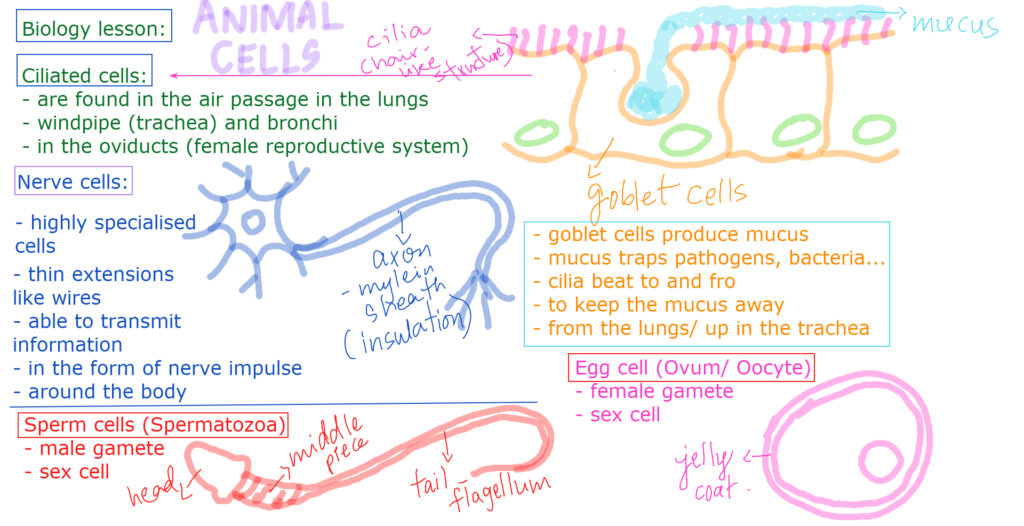 Biology lesson:
ANIMAL
CELLS
Ciliated cells:
- are found in the air passage in the lungs
- windpipe (trachea) and bronchi
- in the oviducts (female reproductive system)
cilia
(hair-
like
structures)
mucus
goblet cells
Nerve cells:
- highly specialised
cells
- thin extensions
like wires
- able to transmit
information
- in the form of nerve impulse
- around the body
axon
- mylein
sheath
(insulation)
- goblet cells produce mucus
- mucus traps pathogens, bacteria...
- cilia beat to and fro
- to keep the mucus away
- from the lungs/ up in the trachea
Sperm cells (Spermatozoa)
- male gamete
- sex cell
head
middle
piece
tail
flagellum
Egg cell (Ovum/ Oocyte)
- female gamete
- sex cell
jelly
coat.